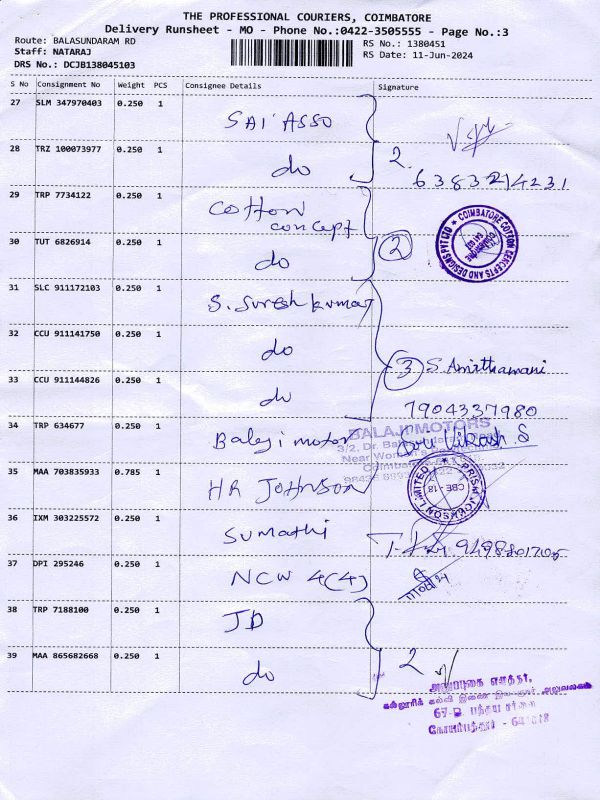 THE PROFESSIONAL COURIERS, COIMBATORE
Delivery Runsheet - MO - Phone No.:0422-3505555 - Page No.:3
Route: BALASUNDARAM RD
RS No.: 1380451
Staff: NATARAJ
RS Date: 11-Jun-2024
DRS No.: DCJB138045103
S No Consignment No Weight PCS Consignee Details Signature
27 SLM 347970403 0.250 1 SAI ASSO
28 TRZ 100073977 0.250 1 do 2.
63832 14231
29 TRP 7734122 0.250 1 Cotton
concept
COIMBATORE COTTON CONCEPTS AND DESIGNS PVT LTD
30 TUT 6826914 0.250 1 do 2
31 SLC 911172103 0.250 1 S. Suresh kumar
32 CCU 911141750 0.250 1 do
3 S. Amirthamani
33 CCU 911144826 0.250 1 do
7904337980
34 TRP 634677 0.250 1 Balaji motor
BALAJI MOTORS
3/2, Dr.
Near Women's
Coimbatore
35 MAA 703835933 0.785 1 HR JOHNSON
PRISM JOHNSON LIMITED
CBE - 18
36 IXM 303225572 0.250 1 Sumathi
37 DPI 295246 0.250 1 NCW 4(4)
38 TRP 7188100 0.250 1 JD
39 MAA 865682668 0.250 1 do 2
கல்லூரிக் கல்வி இணை இயக்குநர் அலுவலகம்
67-D பந்தய சாலை
கோயம்புத்தூர் - 641018